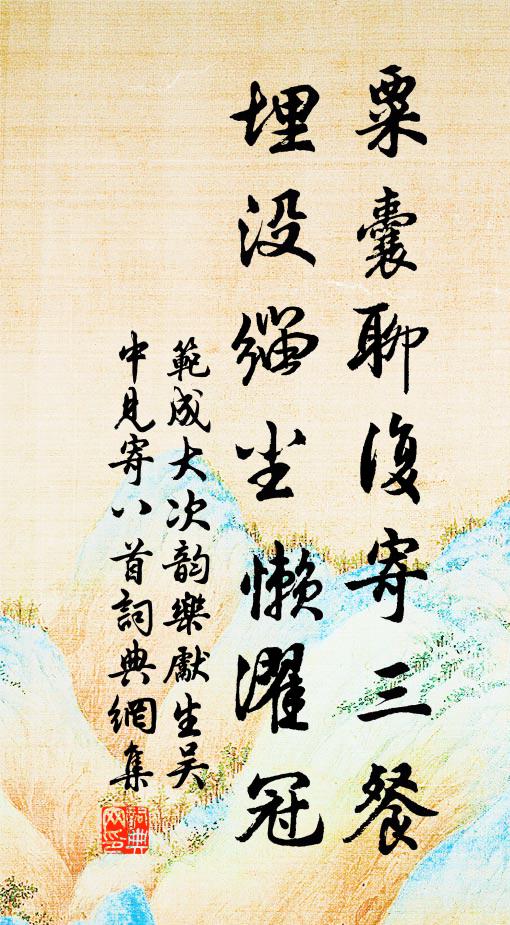 粟囊聊復寄三餐
埋没缁尘懒濯冠
範成大次韵樂獻生吴
中見寄八首詞典網集
詞典